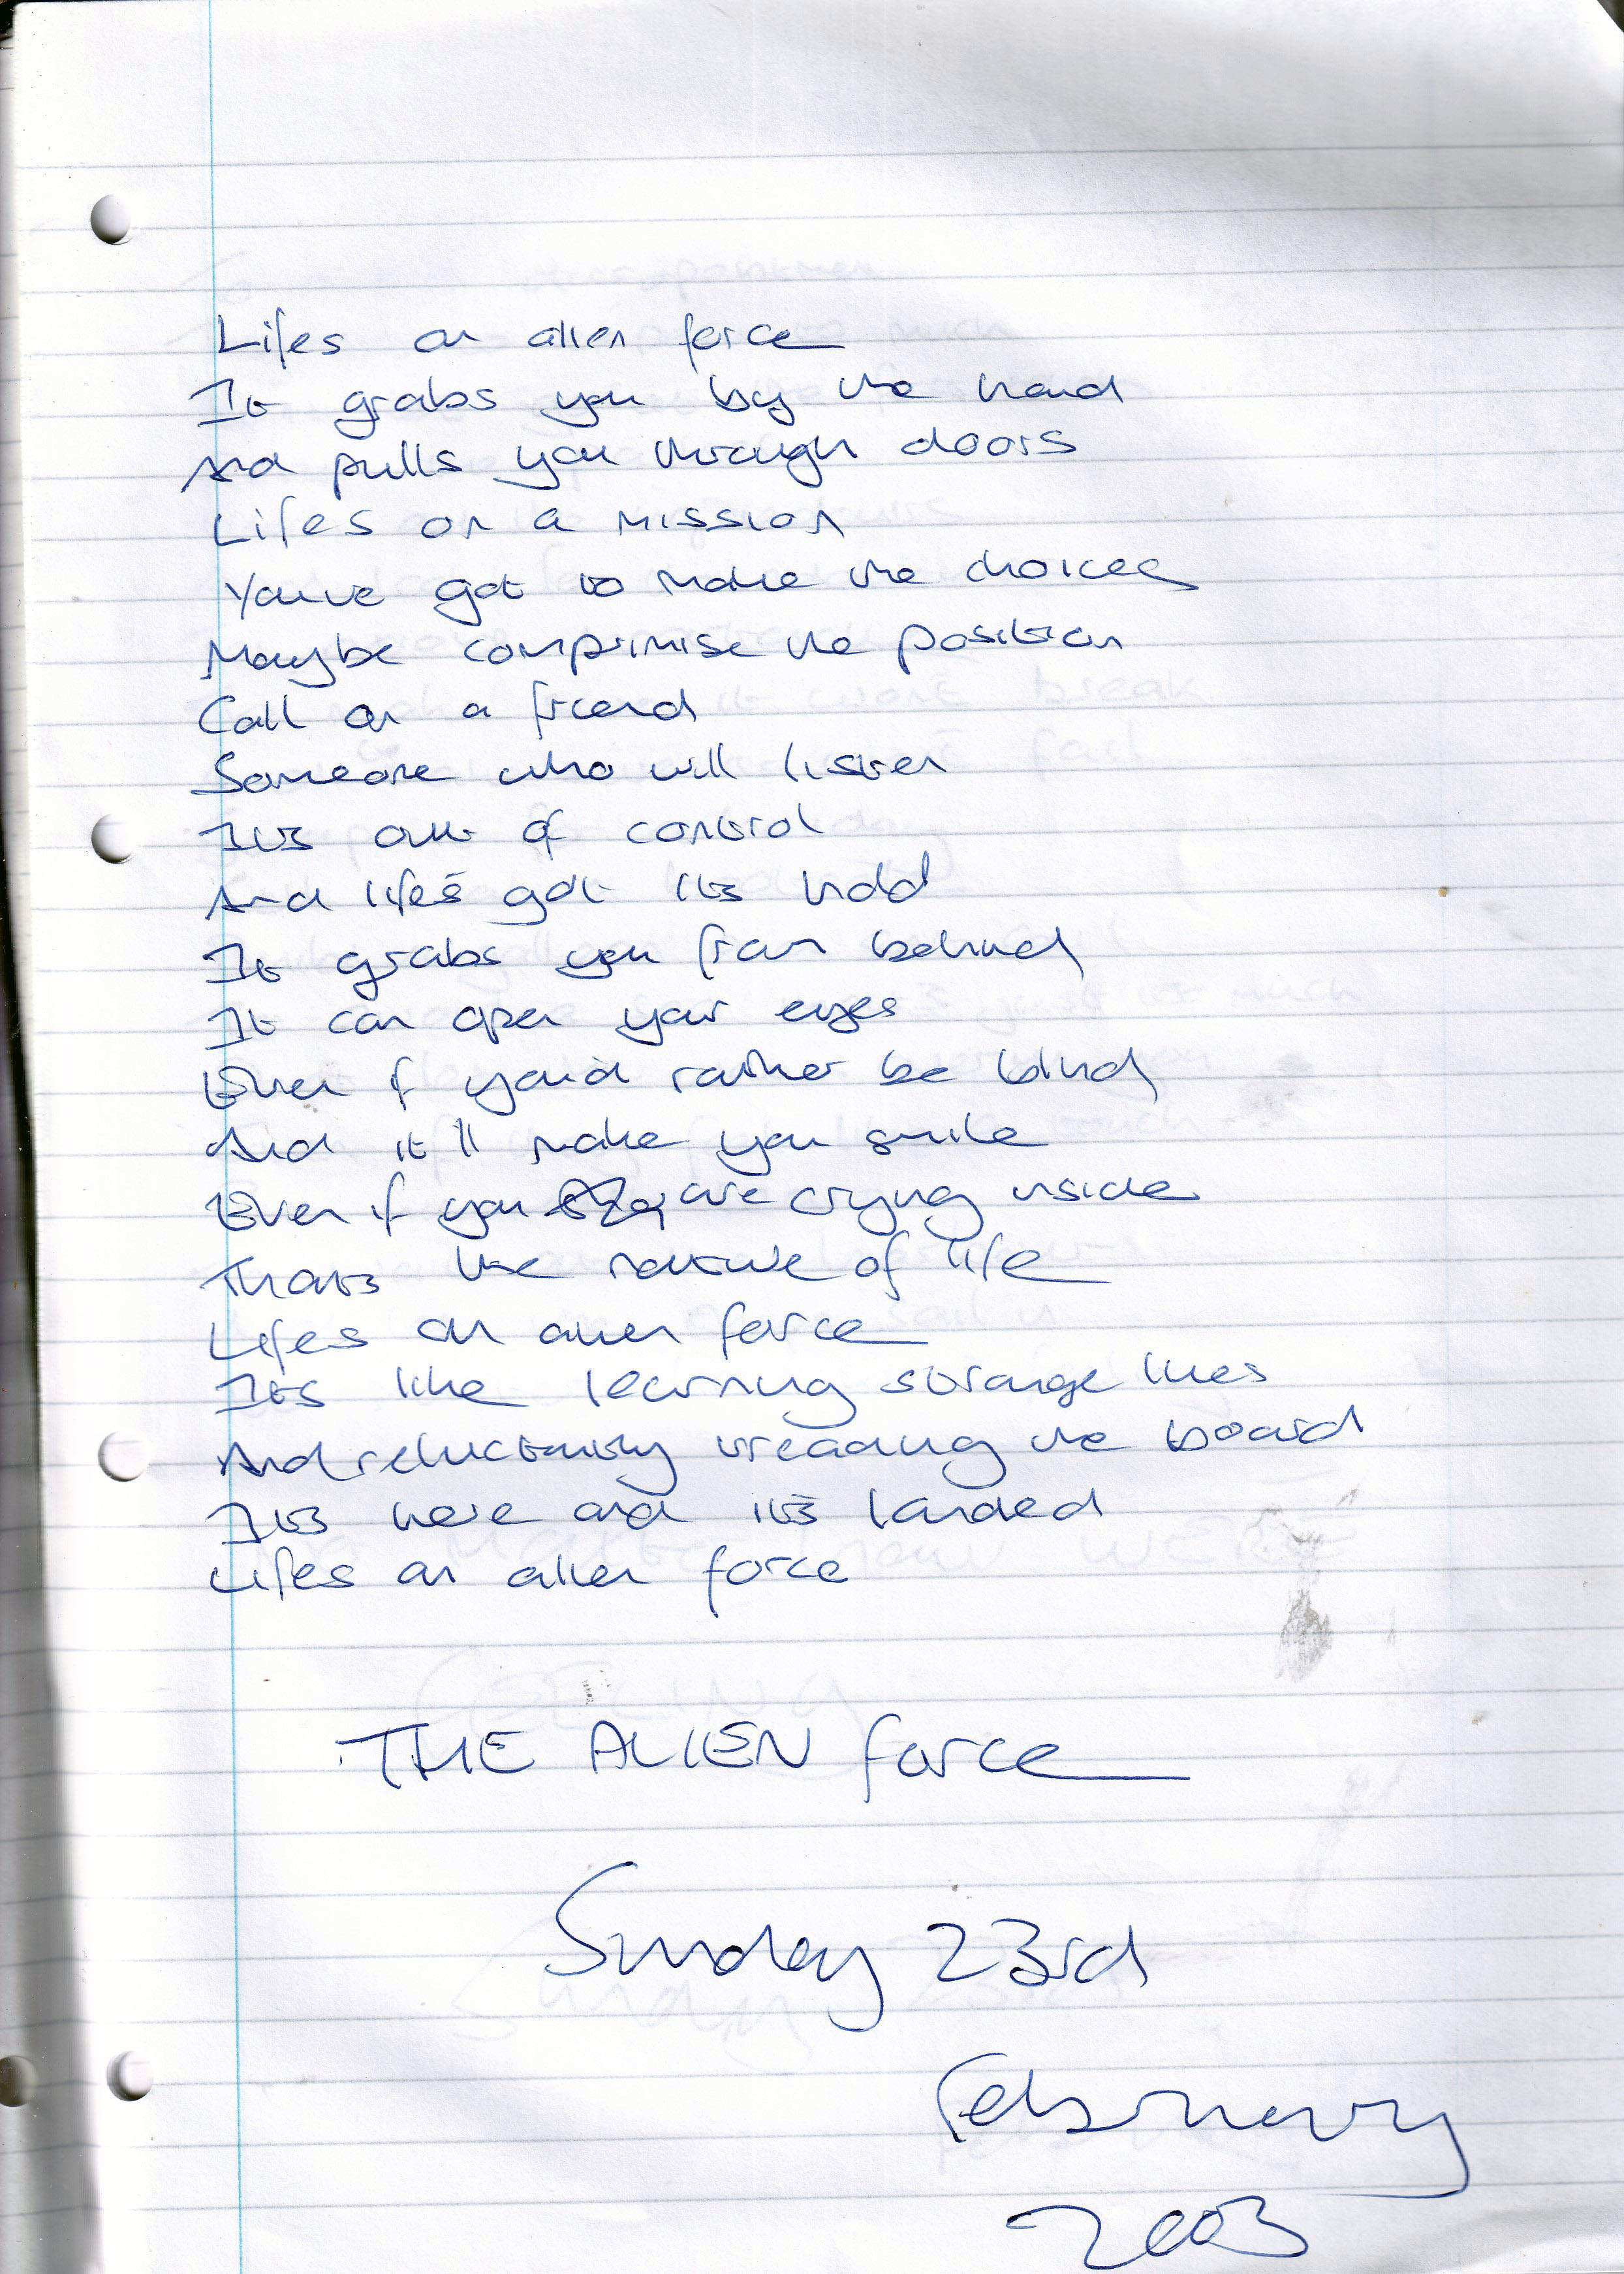 Lifes an alien force
It grabs you by the hand
And pulls you through doors
Lifes on a mission
Youve got to make the choices
Maybe comprimise the position
Call on a friend
Someone who will listen
Its out of control
And life's got its hold
It grabs you from behind
It can open your eyes
Even if you'd rather be blind
And it'll make you smile
Even if you are crying inside
Thats the nature of life
Lifes an alien force
Its like learning strange lines
And reluctantly treading the board
Its here and its landed
Lifes an alien force
THE ALIEN force
Sunday 23rd
February
2003